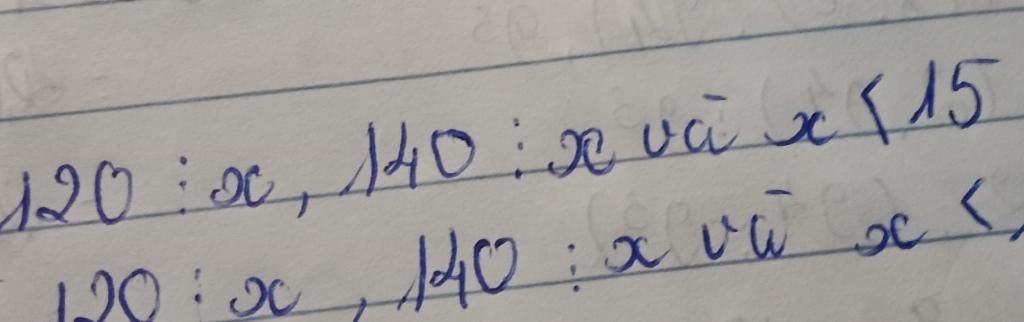 120 ⋮ x, 140 ⋮ x và x < 15
120 ⋮ x, 140 ⋮ x và x <